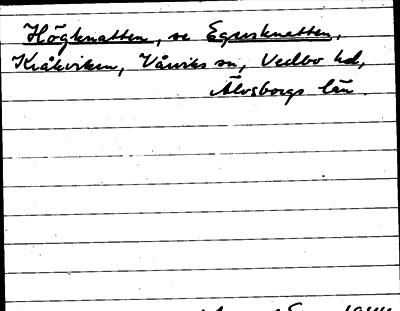 Högknatten, se Egersknatten,
Kråkviken, Vårviks sn, Vedbo hd,
Älvsborgs län.